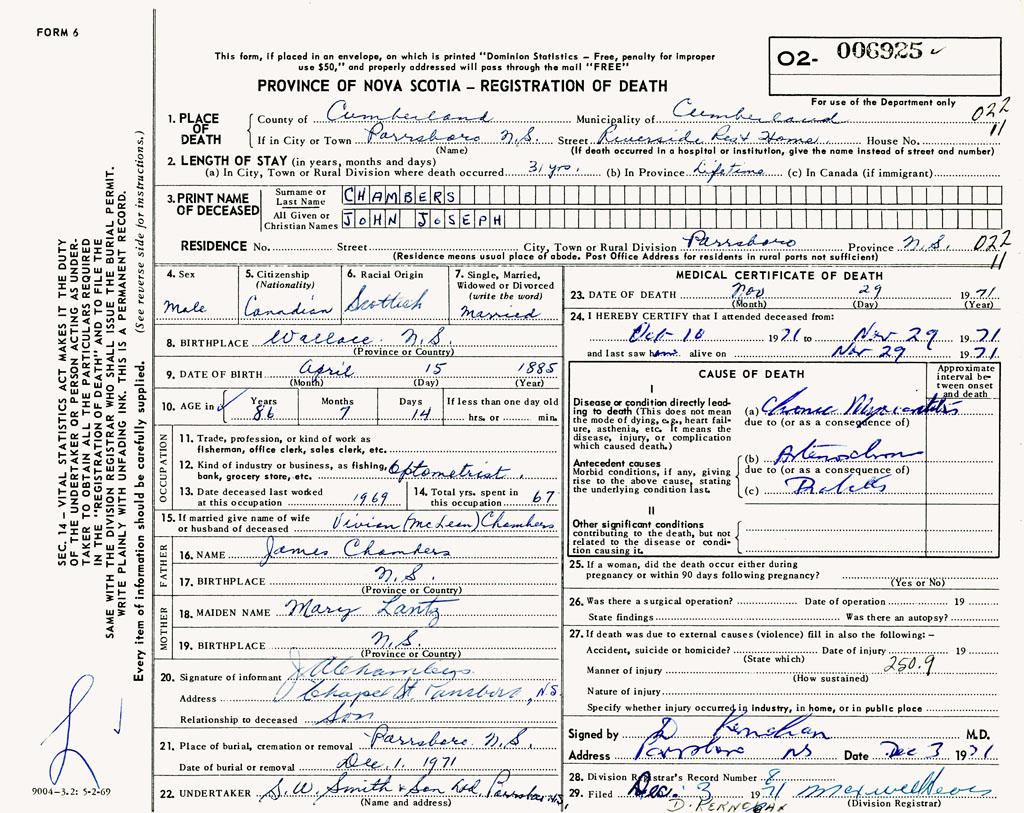 FORM 6
02- 006925
This form, if placed in an envelope, on which is printed "Dominion Statistics – Free, penalty for improper
use $50," and properly addressed will pass through the mail "FREE"
PROVINCE OF NOVA SCOTIA – REGISTRATION OF DEATH
For use of the Department only
022
11
1. PLACE OF DEATH
County of Cumberland Municipality of Cumberland
If in City or Town Parrsboro N.S. Street Riverside Rest Home House No.
(Name) (If death occurred in a hospital or institution, give the name instead of street and number)
2. LENGTH OF STAY (in years, months and days)
(a) In City, Town or Rural Division where death occurred 31 yrs. (b) In Province Lifetime (c) In Canada (if immigrant)
3. PRINT NAME OF DECEASED
Surname or Last Name CHAMBERS
All Given or Christian Names JOHN JOSEPH
RESIDENCE No. Street City, Town or Rural Division Parrsboro Province N.S. 022
(Residence means usual place of abode. Post Office Address for residents in rural parts not sufficient) 11
SEC. 14 – VITAL STATISTICS ACT MAKES IT THE DUTY
OF THE UNDERTAKER OR PERSON ACTING AS UNDER-
TAKER TO OBTAIN ALL THE PARTICULARS REQUIRED
IN THE "REGISTRATION OF DEATH" AND TO FILE THE
SAME WITH THE DIVISION REGISTRAR WHO SHALL ISSUE THE BURIAL PERMIT.
WRITE PLAINLY WITH UNFADING INK. THIS IS A PERMANENT RECORD.
Every item of information should be carefully supplied. (See reverse side for instructions.)
4. Sex Male
5. Citizenship (Nationality) Canadian
6. Racial Origin Scottish
7. Single, Married, Widowed or Divorced (write the word) Married
8. BIRTHPLACE Wallace N.S.
(Province or Country)
9. DATE OF BIRTH April 15 1885
(Month) (Day) (Year)
10. AGE in Years 86 Months 7 Days 14 If less than one day old hrs. or min.
OCCUPATION
11. Trade, profession, or kind of work as
fisherman, office clerk, sales clerk, etc.
12. Kind of industry or business, as fishing, Optometrist
bank, grocery store, etc.
13. Date deceased last worked at this occupation 1969
14. Total yrs. spent in this occupation 67
15. If married give name of wife or husband of deceased Vivian (McLean) Chambers
FATHER
16. NAME James Chambers
17. BIRTHPLACE N.S.
(Province or Country)
MOTHER
18. MAIDEN NAME Mary Lantz
19. BIRTHPLACE N.S.
(Province or Country)
20. Signature of informant
Address Chapel St Parrsboro, N.S.
Relationship to deceased Son
21. Place of burial, cremation or removal Parrsboro N.S.
Date of burial or removal Dec. 1, 1971
22. UNDERTAKER S.W. Smith & Son Ltd, Parrsboro N.S.
(Name and address)
9004-3.2: 5-2-69
MEDICAL CERTIFICATE OF DEATH
23. DATE OF DEATH Nov 29 1971
(Month) (Day) (Year)
24. I HEREBY CERTIFY that I attended deceased from:
Oct 10 1971 to Nov 29 1971
and last saw him alive on Nov 29 1971
CAUSE OF DEATH
Approximate interval between onset and death
I
Disease or condition directly lead-
ing to death (This does not mean
the mode of dying, e.g., heart fail-
ure, asthenia, etc. It means the
disease, injury, or complication
which caused death.)
(a) Chronic Myocarditis
due to (or as a consequence of)
Antecedent causes
Morbid conditions, if any, giving
rise to the above cause, stating
the underlying condition last.
(b)
due to (or as a consequence of)
(c) Diabetes
II
Other significant conditions
contributing to the death, but not
related to the disease or condi-
tion causing it.
25. If a woman, did the death occur either during
pregnancy or within 90 days following pregnancy?
(Yes or No)
26. Was there a surgical operation? Date of operation 19
State findings Was there an autopsy?
27. If death was due to external causes (violence) fill in also the following: –
Accident, suicide or homicide? Date of injury 19
(State which)
Manner of injury 250.9
(How sustained)
Nature of injury
Specify whether injury occurred in industry, in home, or in public place
Signed by M.D.
Address Parrsboro NS Date Dec 3 1971
28. Division Registrar's Record Number 8
29. Filed Dec. 3 1971
(Division Registrar)